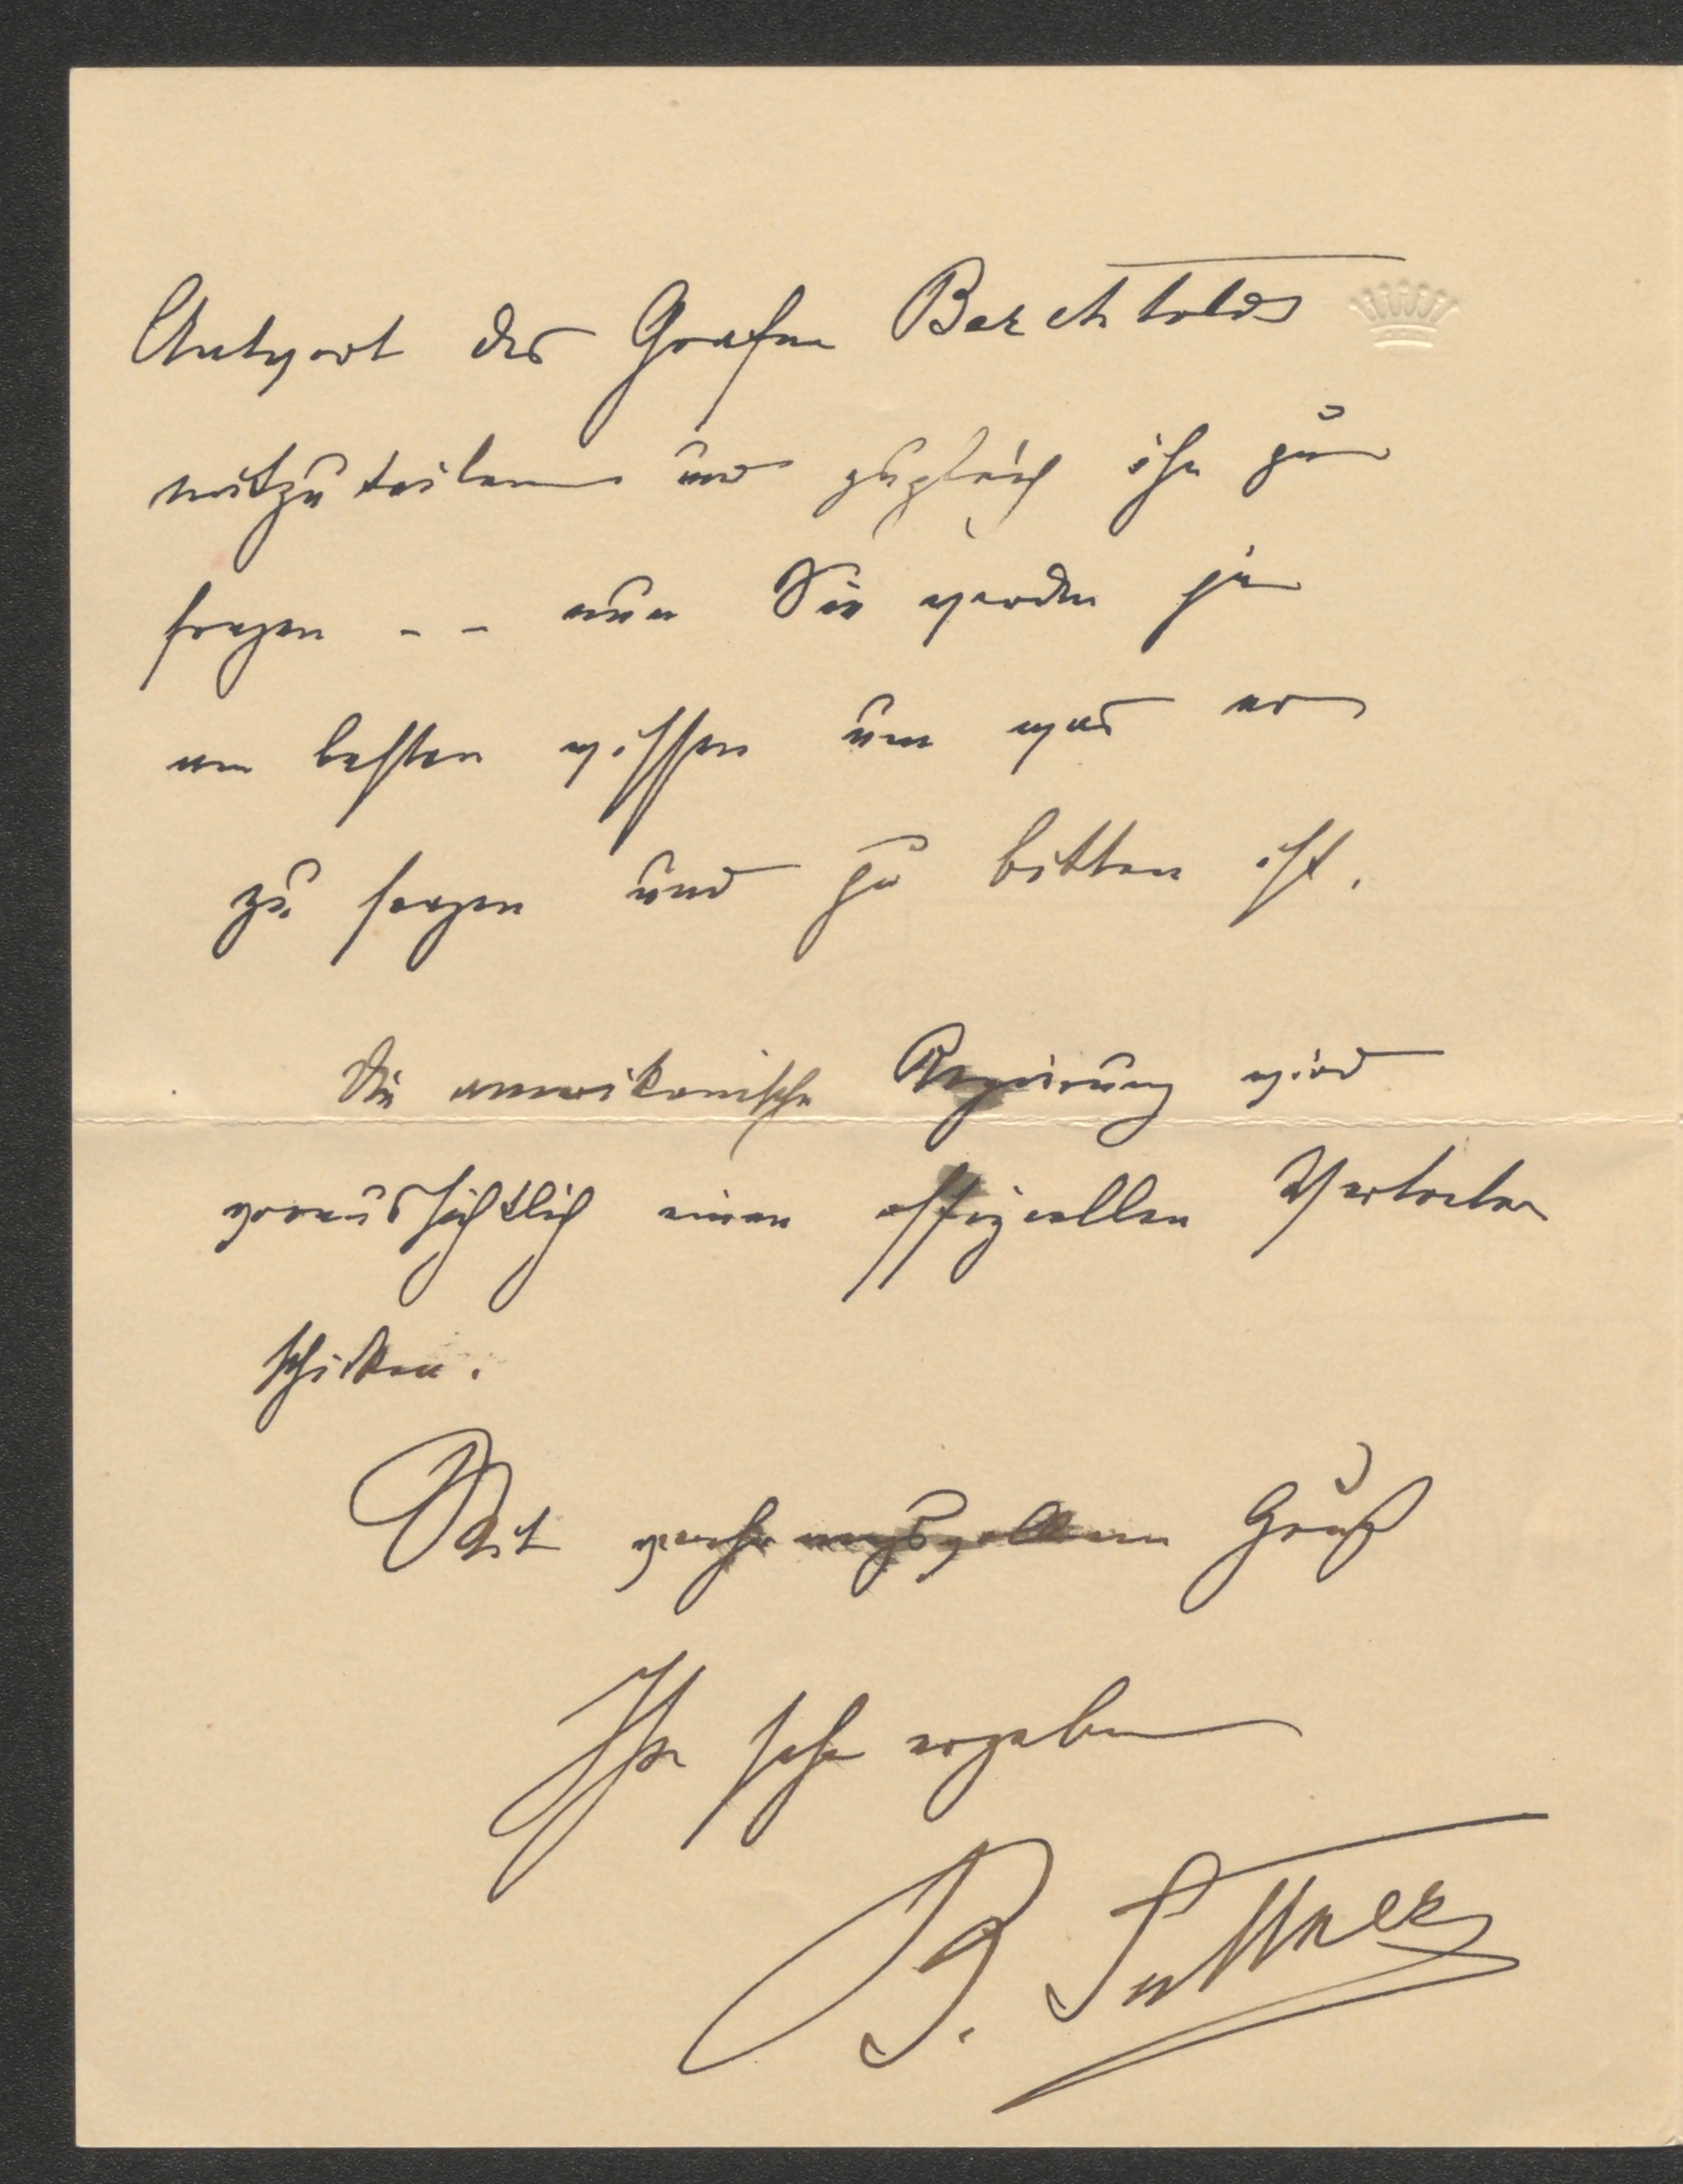 Antwort des Grafen Berchtolds
mitzuteilen und zugleich ihn zu
fragen - - nun Sie werden ja
am besten wissen um was er
zu fragen und zu bitten ist.
Die amerikanische Regierung wird
voraussichtlich einen offiziellen Vertreter
schicken.
Mit verehrungsvollem Gruß
Ihre sehr ergebene
B. Suttner